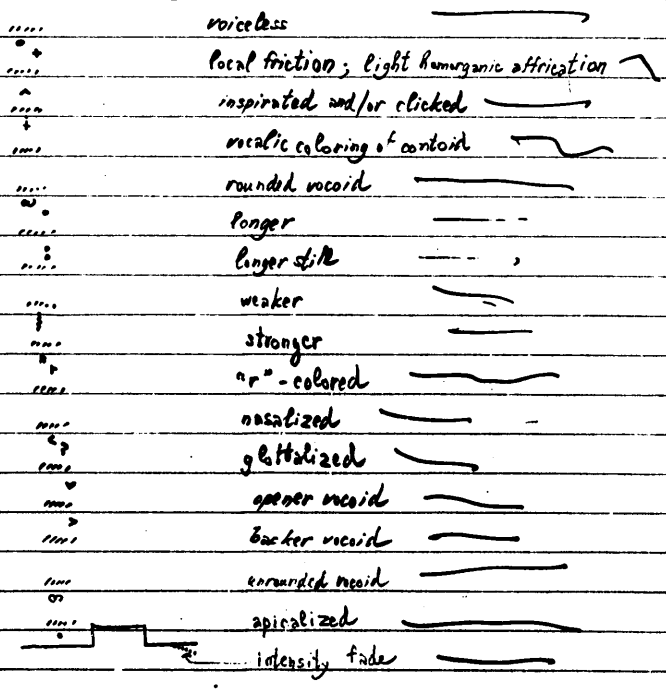 voiceless
local friction; light homorganic affrication
inspirated and/or clicked
vocalic coloring of contoid
rounded vocoid
longer
longer still
weaker
stronger
"r" - colored
nasalized
glottalized
opener vocoid
backer vocoid
unrounded vocoid
apicalized
intensity fade